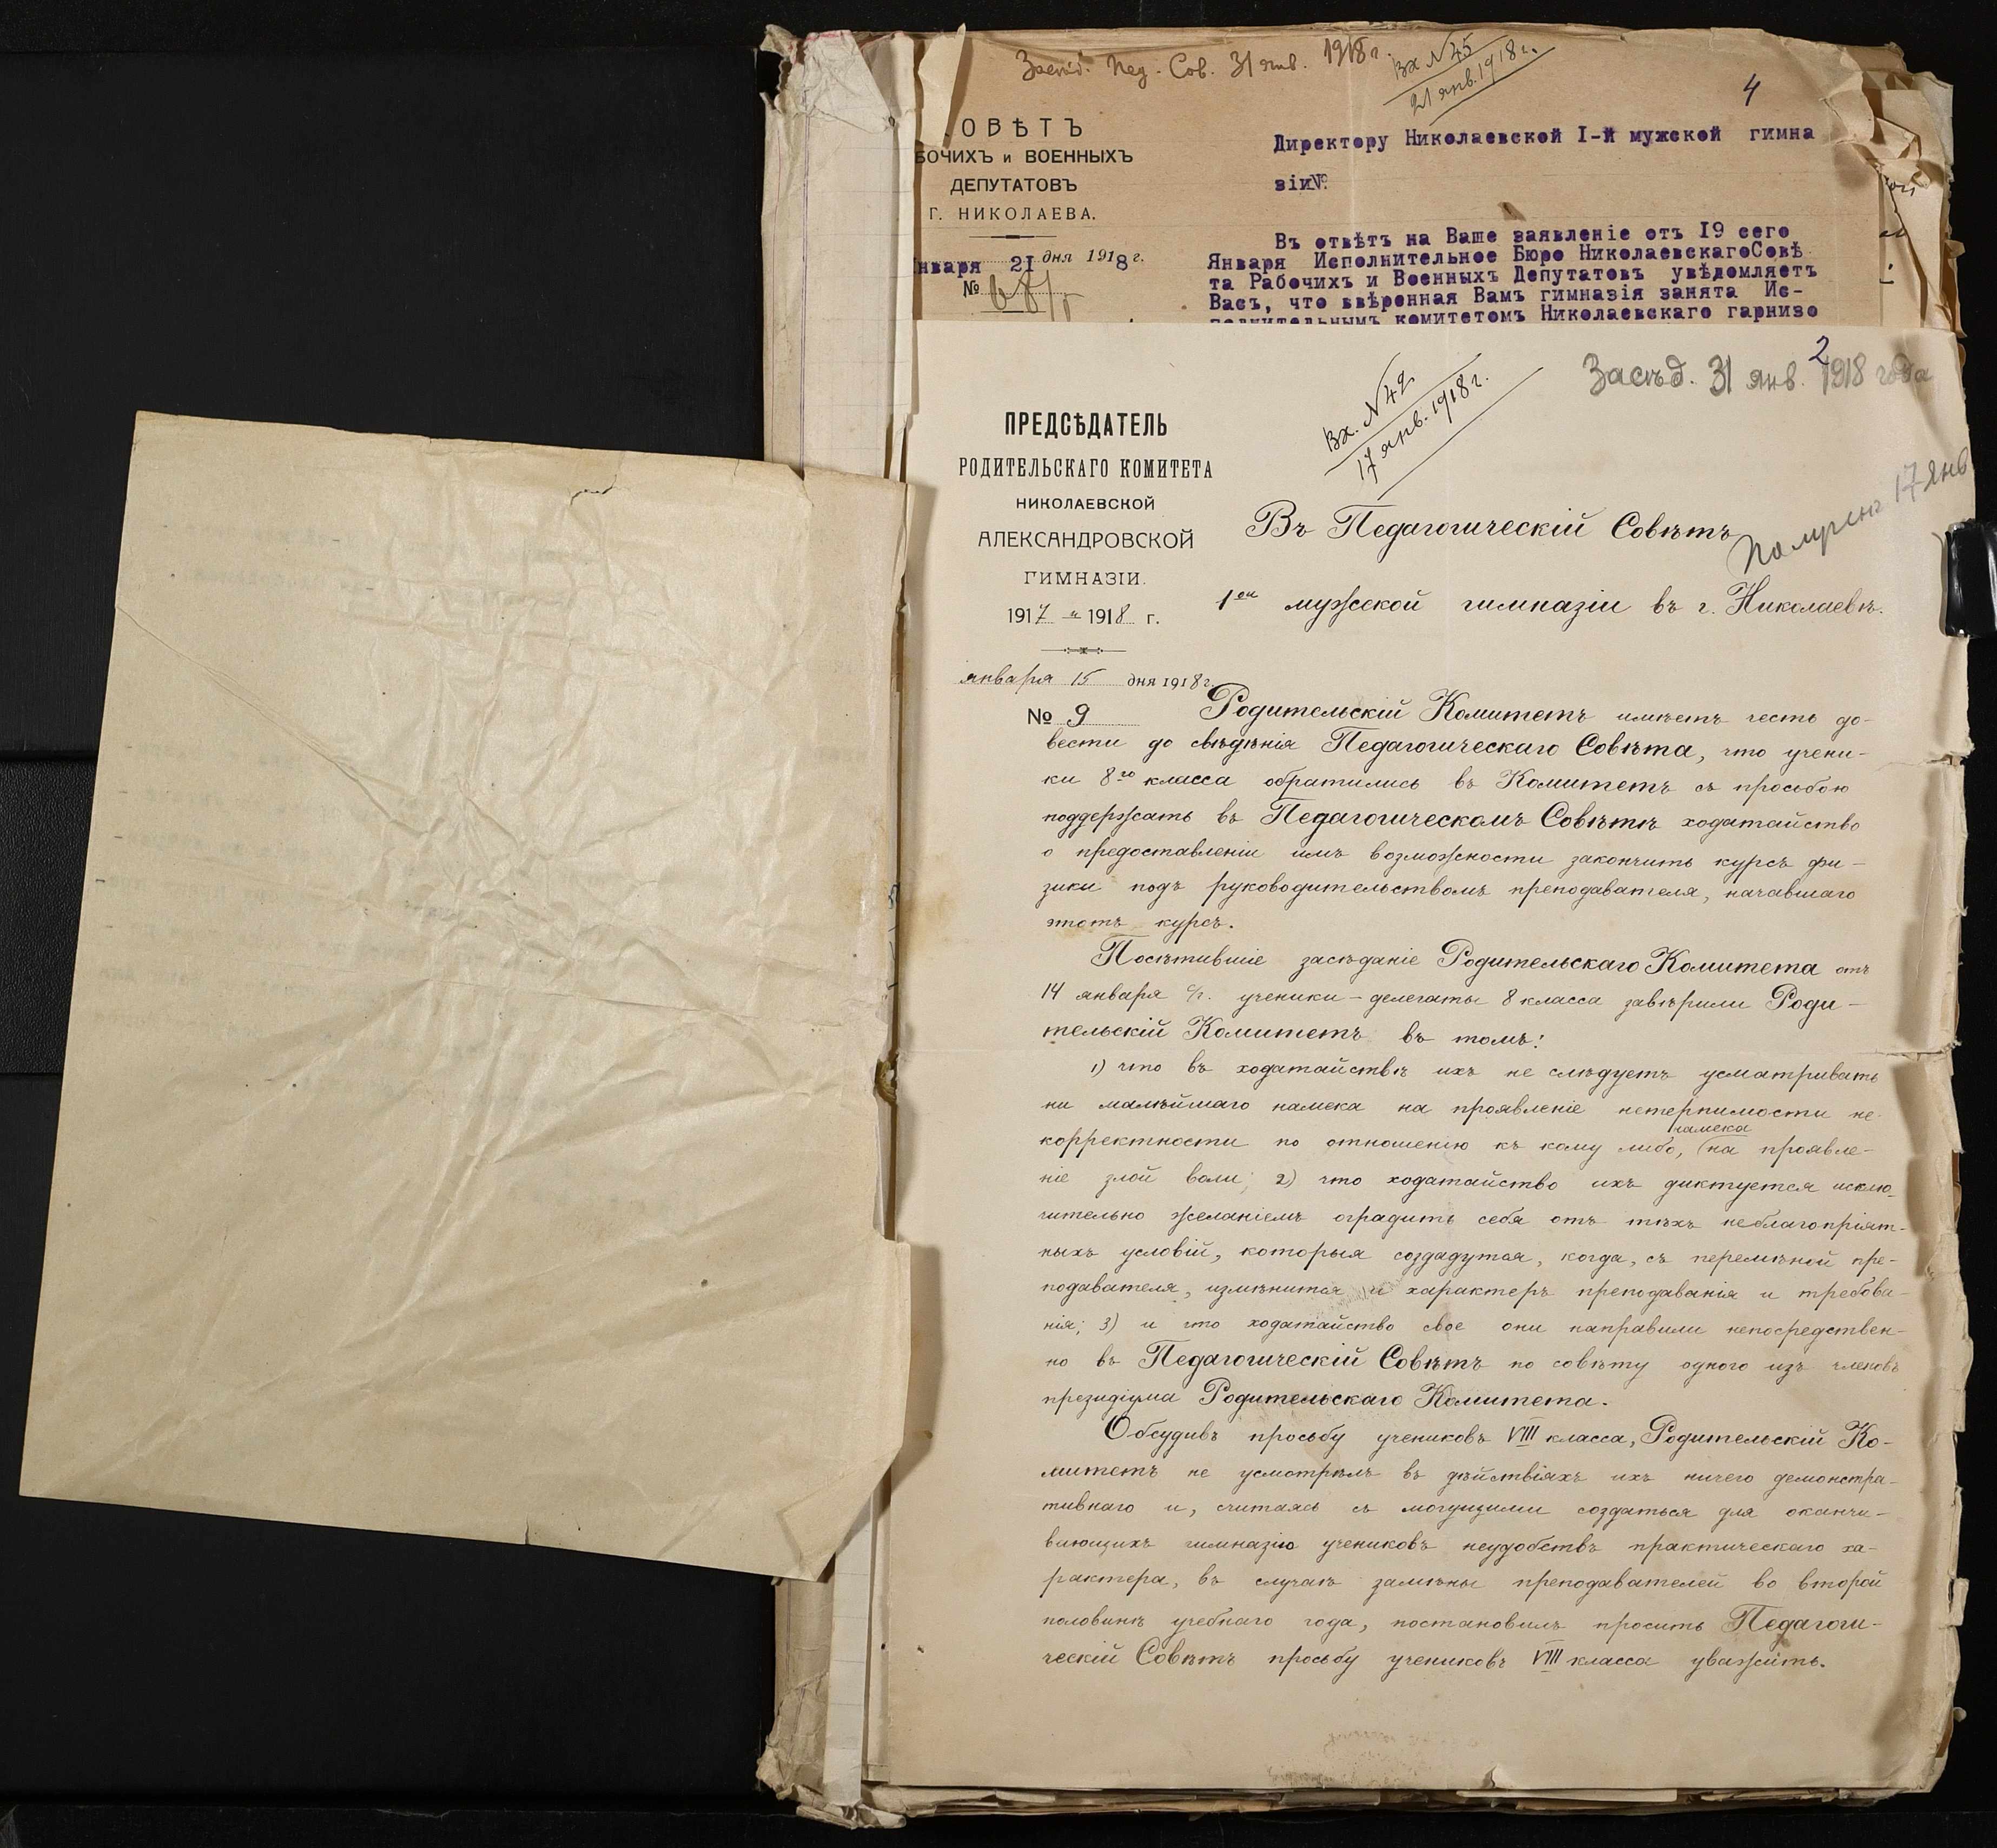 Засѣд. Пед. Сов. 31 янв. 1918 г.
Вх №45
21 янв. 1918 г.
4
ОВѢТЪ
БОЧИХЪ и ВОЕННЫХЪ
ДЕПУТАТОВЪ
Г. НИКОЛАЕВА.
нваря 21 дня 1918 г.
№
Директору Николаевской I-й мужской гимна
зіи
Въ отвѣтъ на Ваше заявленіе отъ I9 сего
Января Исполнительное Бюро НиколаевскагоСовѣ
та Рабочихъ и Военныхъ Депутатовъ увѣдомляетъ
Васъ, что ввѣренная Вамъ гимназія занята Ис-
полнительнымъ комитетомъ Николаевскаго гарнизо
2
Засѣд. 31 янв. 1918 года
Вх. №42
17 янв. 1918 г.
Получено 17 янв
ПРЕДСѢДАТЕЛЬ
РОДИТЕЛЬСКАГО КОМИТЕТА
НИКОЛАЕВСКОЙ
АЛЕКСАНДРОВСКОЙ
ГИМНАЗІИ.
1917 – 1918 г.
января 15 дня 1918 г.
№ 9
Въ Педагогическій Совѣтъ
1ой мужской гимназіи въ г. Николаевѣ.
Родительскій Комитетъ имѣетъ честь до-
вести до свѣдѣнія Педагогическаго Совѣта, что учени-
ки 8го класса обратились въ Комитетъ съ просьбою
поддержать въ Педагогическомъ Совѣтѣ ходатайство
о предоставленіи имъ возможности закончить курсъ фи-
зики подъ руководительствомъ преподавателя, начавшаго
этотъ курсъ.
Посѣтившіе засѣданіе Родительскаго Комитета отъ
14 января с/г. ученики-делегаты 8 класса завѣрили Роди-
тельскій Комитетъ въ томъ:
1) что въ ходатайствѣ ихъ не слѣдуетъ усматривать
ни малѣйшаго намека на проявленіе нетерпимости не-
корректности по отношенію къ кому либо, намека на проявле-
ніе злой воли; 2) что ходатайство ихъ диктуется исклю-
чительно желаніемъ оградить себя отъ тѣхъ неблагопріят-
ныхъ условій, которыя создадутся, когда, съ перемѣной пре-
подавателя, измѣнится и характеръ преподаванія и требова-
нія; 3) и что ходатайство свое они направили непосредствен-
но въ Педагогическій Совѣтъ по совѣту одного изъ членовъ
президіума Родительскаго Комитета.
Обсудивъ просьбу учениковъ VIII класса, Родительскій Ко-
митетъ не усмотрѣлъ въ дѣйствіяхъ ихъ ничего демонстра-
тивнаго и, считаясь съ могущими создаться для оканчи-
вающихъ гимназію учениковъ неудобствъ практическаго ха-
рактера, въ случаѣ замѣны преподавателей во второй
половинѣ учебнаго года, постановилъ просить Педагоги-
ческій Совѣтъ просьбу учениковъ VIII класса уважить.